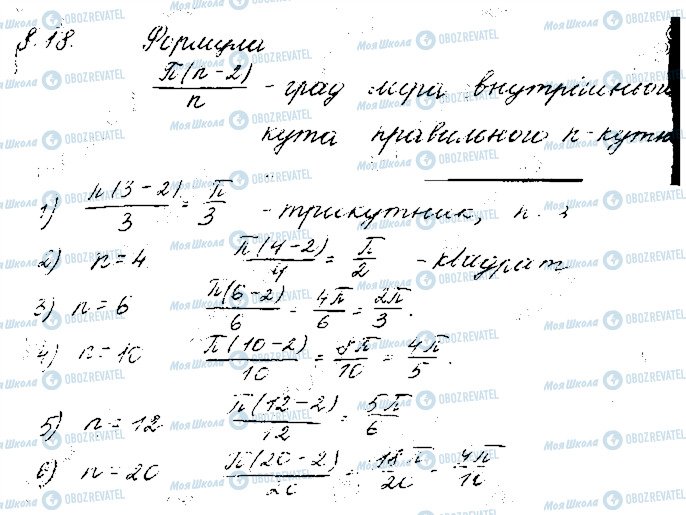 8.18. Формула
П(n-2)/n - град мера внутрішньої
кута правильного n-кутн
1) П(3-2)/3 = П/3 - трикутник, n. 3
2) n=4 П(4-2)/4 = П/2 - квадрат
3) n=6 П(6-2)/6 = 4П/6 = 2П/3.
4) n=10 П(10-2)/10 = 8П/10 = 4П/5.
5) n=12 П(12-2)/12 = 5П/6
6) n=20 П(20-2)/20 = 18П/20 =
МояШкола OBOZREVATEL